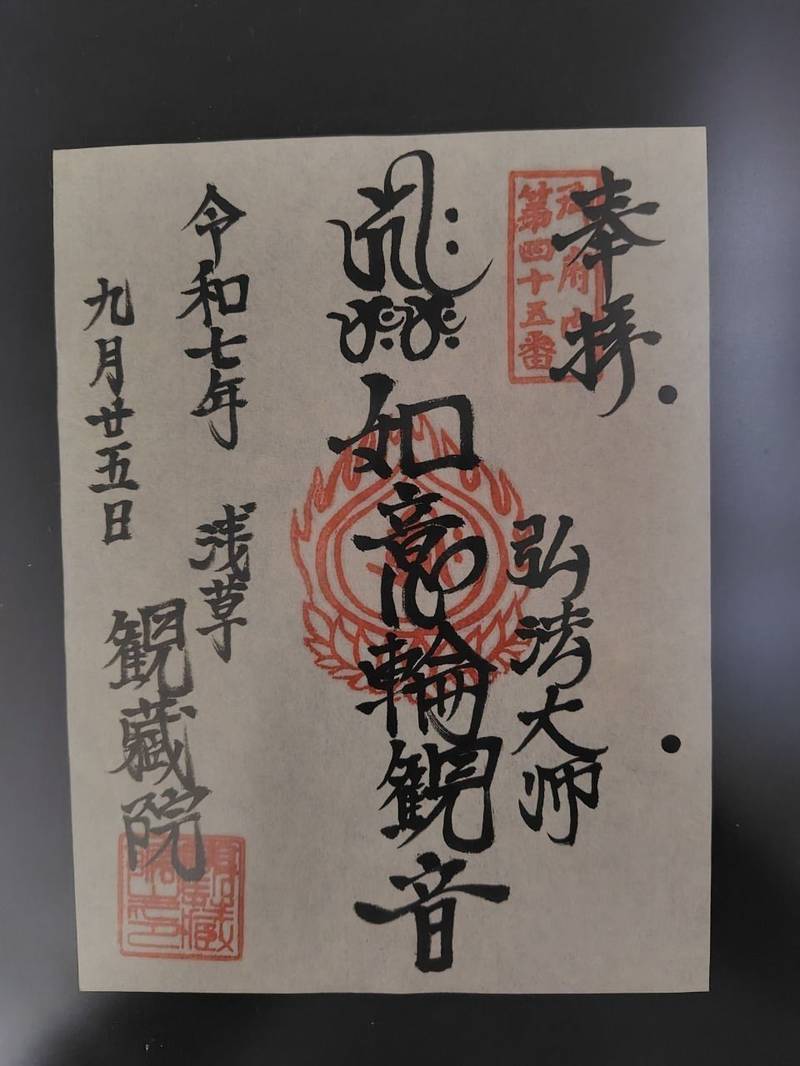 奉拝
御府内
第四十五番
弘法大师
如意輪觀音
令和七年
浅草
観蔵院
九月廿五日